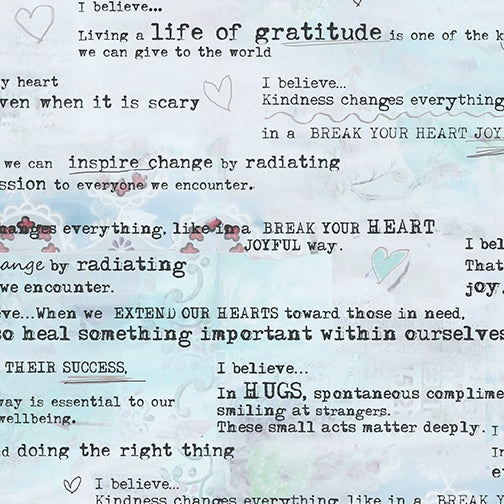 I believe...
Living a life of gratitude is one of the k
we can give to the world
y heart
ven when it is scary
I believe...
Kindness changes everything
in a BREAK YOUR HEART JOY
we can inspire change by radiating
ssion to everyone we encounter.
hanges everything, like in a BREAK YOUR HEART
JOYFUL way.
I bel
ange by radiating
That
we encounter.
joy.
eve...When we EXTEND OUR HEARTS toward those in need,
so heal something important within ourselves
THEIR SUCCESS,
I believe...
In HUGS, spontaneous complime
way is essential to our
smiling at strangers.
wellbeing.
These small acts matter deeply.
I
d doing the right thing
In
e
I believe...
Kindness changes everything like in a BREAK